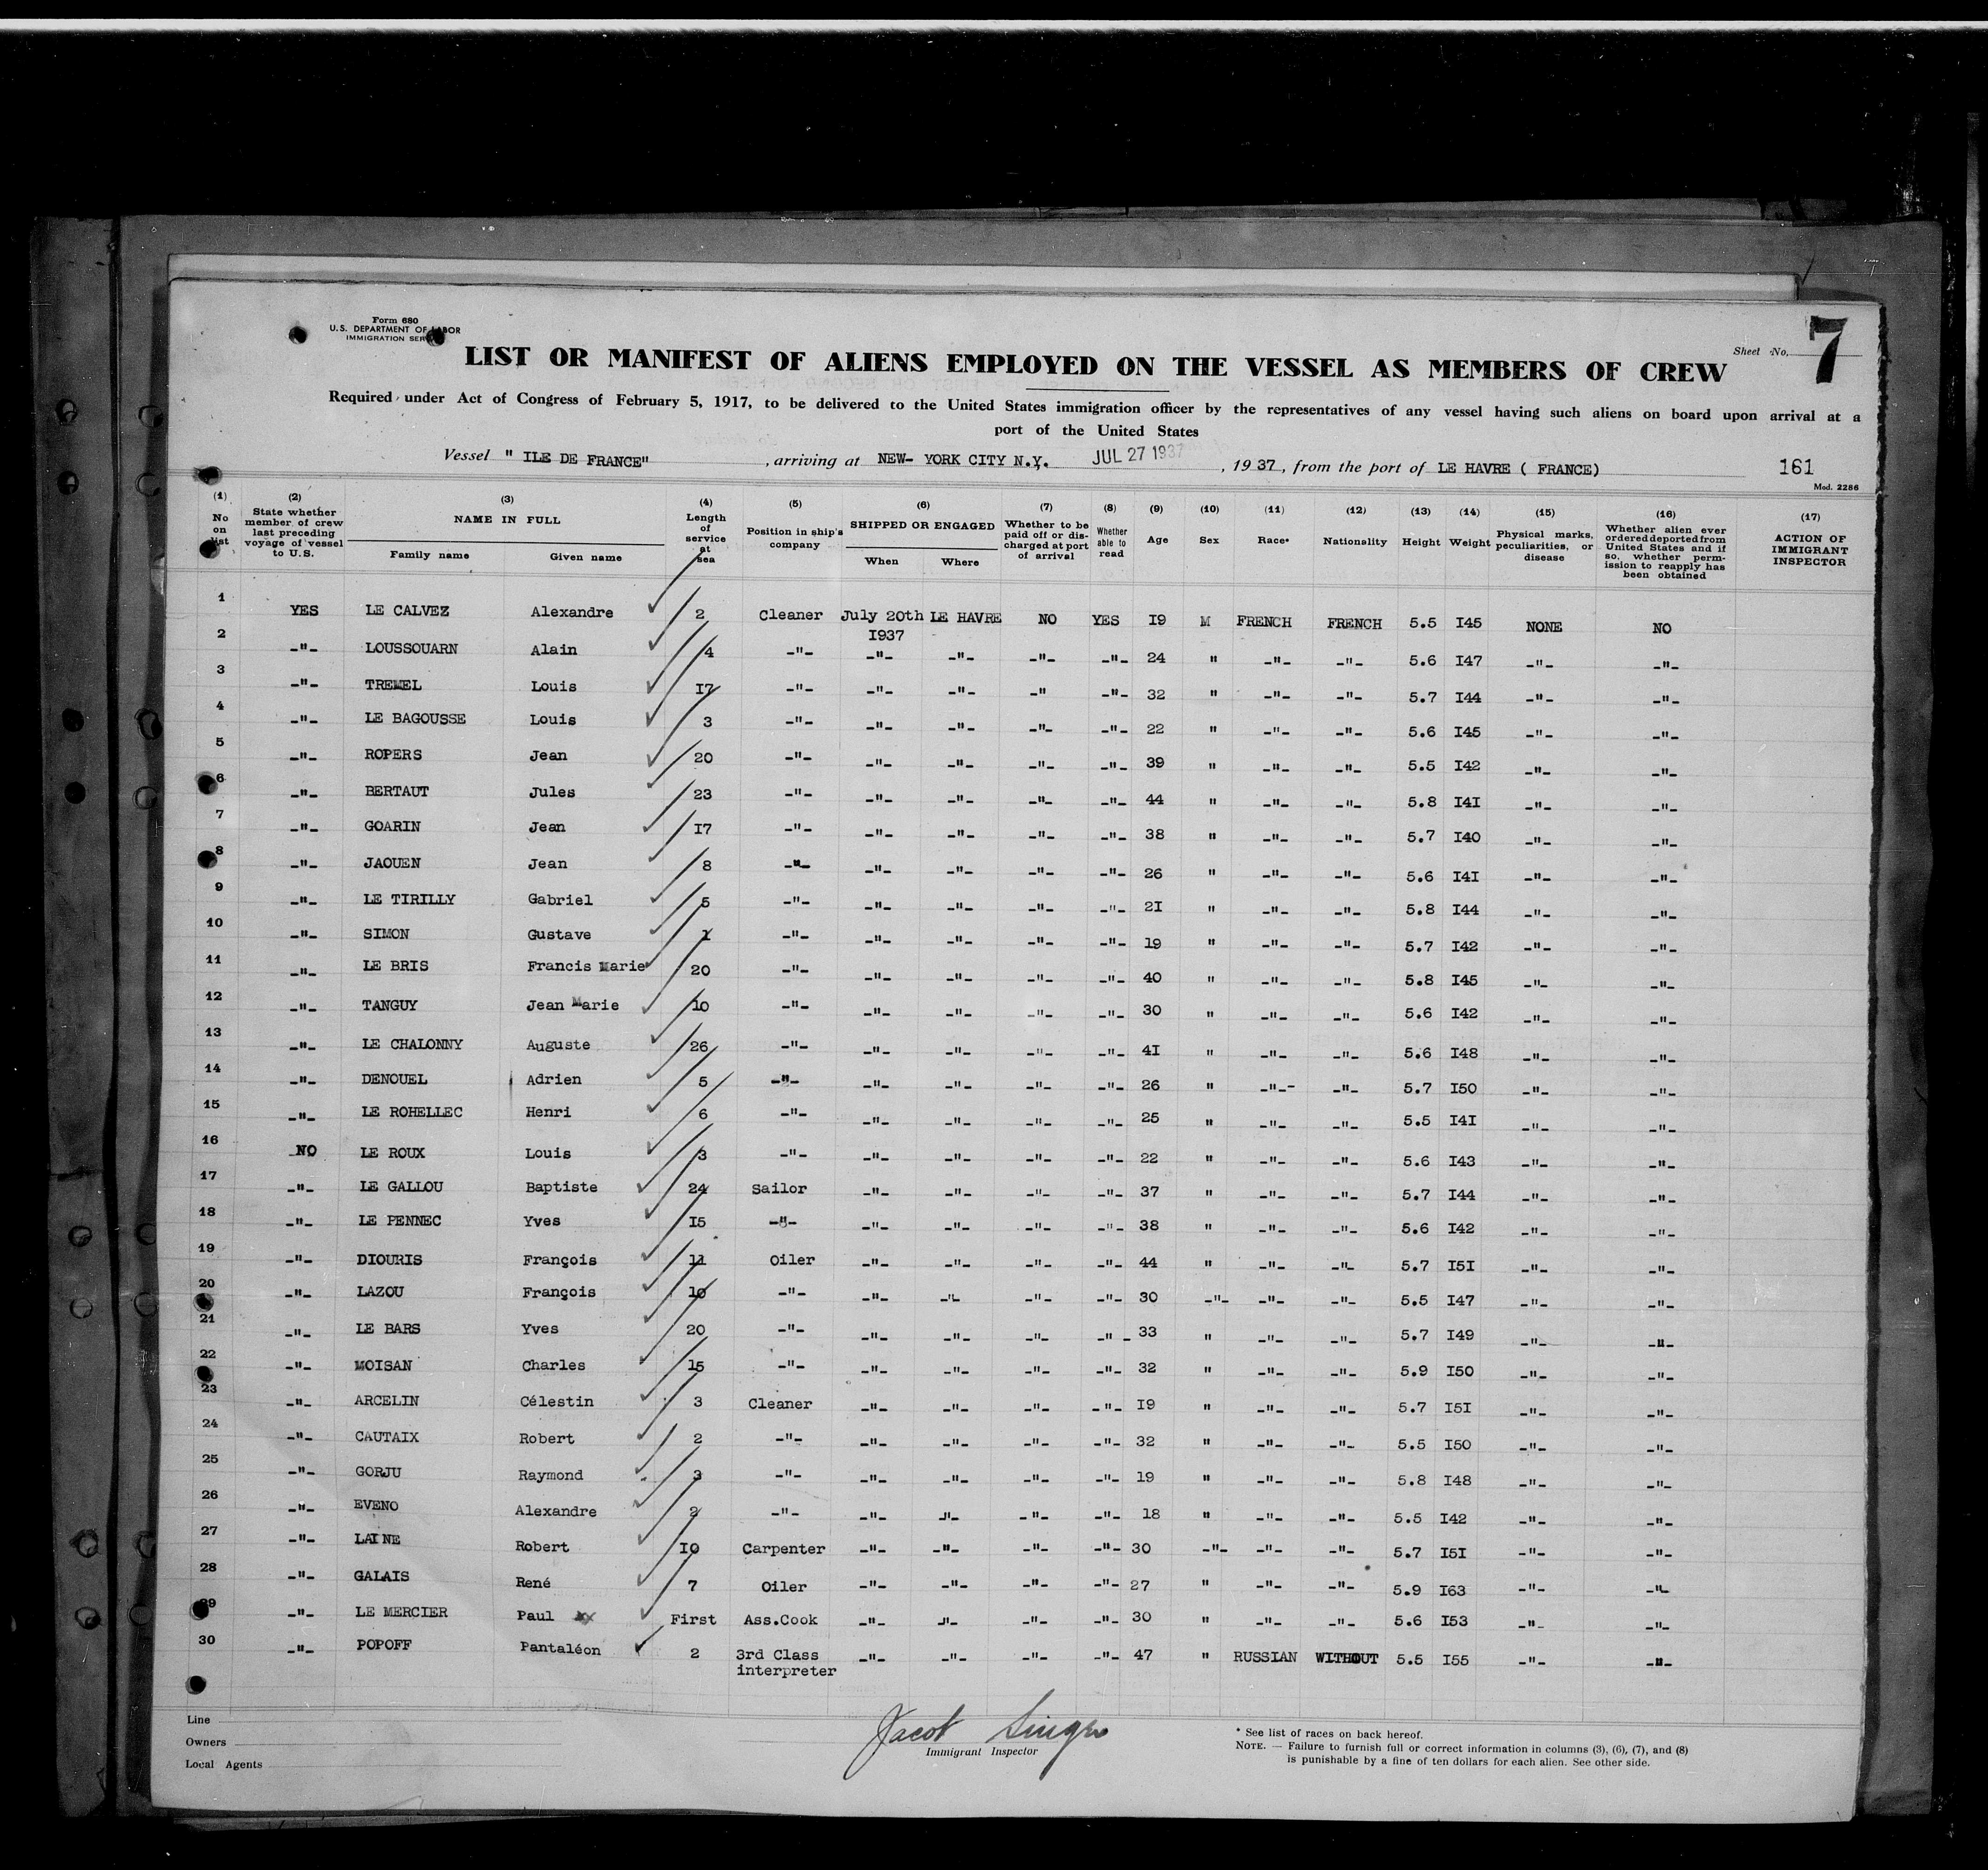 Form 680
U.S. DEPARTMENT OF LABOR
IMMIGRATION SERVICE
LIST OR MANIFEST OF ALIENS EMPLOYED ON THE VESSEL AS MEMBERS OF CREW
Sheet No. 7
Required under Act of Congress of February 5, 1917, to be delivered to the United States immigration officer by the representatives of any vessel having such aliens on board upon arrival at a
port of the United States
Vessel " ILE DE FRANCE" , arriving at NEW- YORK CITY N.Y. JUL 27 1937 , 1937 , from the port of LE HAVRE ( FRANCE) 161
Mod. 2286
(1) No on list (2) State whether member of crew last preceding voyage of vessel to U.S. (3) NAME IN FULL Family name Given name (4) Length of service at sea (5) Position in ship's company (6) SHIPPED OR ENGAGED When Where (7) Whether to be paid off or discharged at port of arrival (8) Whether able to read (9) Age (10) Sex (11) Race* (12) Nationality (13) Height (14) Weight (15) Physical marks, peculiarities, or disease (16) Whether alien ever ordered deported from United States and if so, whether permission to reapply has been obtained (17) ACTION OF IMMIGRANT INSPECTOR
1 YES LE CALVEZ Alexandre 2 Cleaner July 20th 1937 LE HAVRE NO YES 19 M FRENCH FRENCH 5.5 I45 NONE NO
2 -"- LOUSSOUARN Alain 4 -"- -"- -"- -"- -"- 24 " -"- -"- 5.6 I47 -"- -"-
3 -"- TREMEL Louis I7 -"- -"- -"- -" -"- 32 " -"- -"- 5.7 I44 -"- -"-
4 -"- LE BAGOUSSE Louis 3 -"- -"- -"- -"- -"- 22 " -"- -"- 5.6 I45 -"- -"-
5 -"- ROPERS Jean 20 -"- -"- -"- -"- -"- 39 " -"- -"- 5.5 I42 -"- -"-
6 -"- BERTAUT Jules 23 -"- -"- -"- -"- -"- 44 " -"- -"- 5.8 I4I -"- -"-
7 -"- GOARIN Jean I7 -"- -"- -"- -"- -"- 38 " -"- -"- 5.7 I40 -"- -"-
8 -"- JAOUEN Jean 8 -"- -"- -"- -"- -"- 26 " -"- -"- 5.6 I4I -"- -"-
9 -"- LE TIRILLY Gabriel 5 -"- -"- -"- -"- -"- 2I " -"- -"- 5.8 I44 -"- -"-
10 -"- SIMON Gustave 1 -"- -"- -"- -"- -"- 19 " -"- -"- 5.7 I42 -"- -"-
11 -"- LE BRIS Francis Marie 20 -"- -"- -"- -"- -"- 40 " -"- -"- 5.8 I45 -"- -"-
12 -"- TANGUY Jean Marie 10 -"- -"- -"- -"- -"- 30 " -"- -"- 5.6 I42 -"- -"-
13 -"- LE CHALONNY Auguste 26 -"- -"- -"- -"- -"- 4I " -"- -"- 5.6 I48 -"- -"-
14 -"- DENOUEL Adrien 5 -"- -"- -"- -"- -"- 26 " -"-- -"- 5.7 I50 -"- -"-
15 -"- LE ROHELLEC Henri 6 -"- -"- -"- -"- -"- 25 " -"- -"- 5.5 I4I -"- -"-
16 NO LE ROUX Louis 3 -"- -"- -"- -"- -"- 22 " -"- -"- 5.6 I43 -"- -"-
17 -"- LE GALLOU Baptiste 24 Sailor -"- -"- -"- -"- 37 " -"- -"- 5.7 I44 -"- -"-
18 -"- LE PENNEC Yves I5 -"- -"- -"- -"- -"- 38 " -"- -"- 5.6 I42 -"- -"-
19 -"- DIOURIS François 11 Oiler -"- -"- -"- -"- 44 " -"- -"- 5.7 I5I -"- -"-
20 -"- LAZOU François 10 -"- -"- -"- -"- -"- 30 -"- -"- -"- 5.5 I47 -"- -"-
21 -"- LE BARS Yves 20 -"- -"- -"- -"- -"- 33 " -"- -"- 5.7 I49 -"- -"-
22 -"- MOISAN Charles 15 -"- -"- -"- -"- -"- 32 " -"- -"- 5.9 I50 -"- -"-
23 -"- ARCELIN Célestin 3 Cleaner -"- -"- -"- -"- I9 " -"- -"- 5.7 I5I -"- -"-
24 -"- CAUTAIX Robert 2 -"- -"- -"- -"- -"- 32 " -"- -"- 5.5 I50 -"- -"-
25 -"- GORJU Raymond 3 -"- -"- -"- -"- -"- 19 " -"- -"- 5.8 I48 -"- -"-
26 -"- EVENO Alexandre 2 -"- -"- -"- -"- -"- 18 " -"- -"- 5.5 I42 -"- -"-
27 -"- LAINE Robert I0 Carpenter -"- -"- -"- -"- 30 -"- -"- -"- 5.7 I5I -"- -"-
28 -"- GALAIS René 7 Oiler -"- -"- -"- -"- 27 " -"- -"- 5.9 I63 -"- -"-
29 -"- LE MERCIER Paul First Ass.Cook -"- -"- -"- -"- 30 " -"- -"- 5.6 I53 -"- -"-
30 -"- POPOFF Pantaléon 2 3rd Class interpreter -"- -"- -"- -"- 47 " RUSSIAN WITHOUT 5.5 I55 -"- -"-
Line
Owners
Local Agents
Jacob Singer
Immigrant Inspector
* See list of races on back hereof.
NOTE. — Failure to furnish full or correct information in columns (3), (6), (7), and (8)
is punishable by a fine of ten dollars for each alien. See other side.